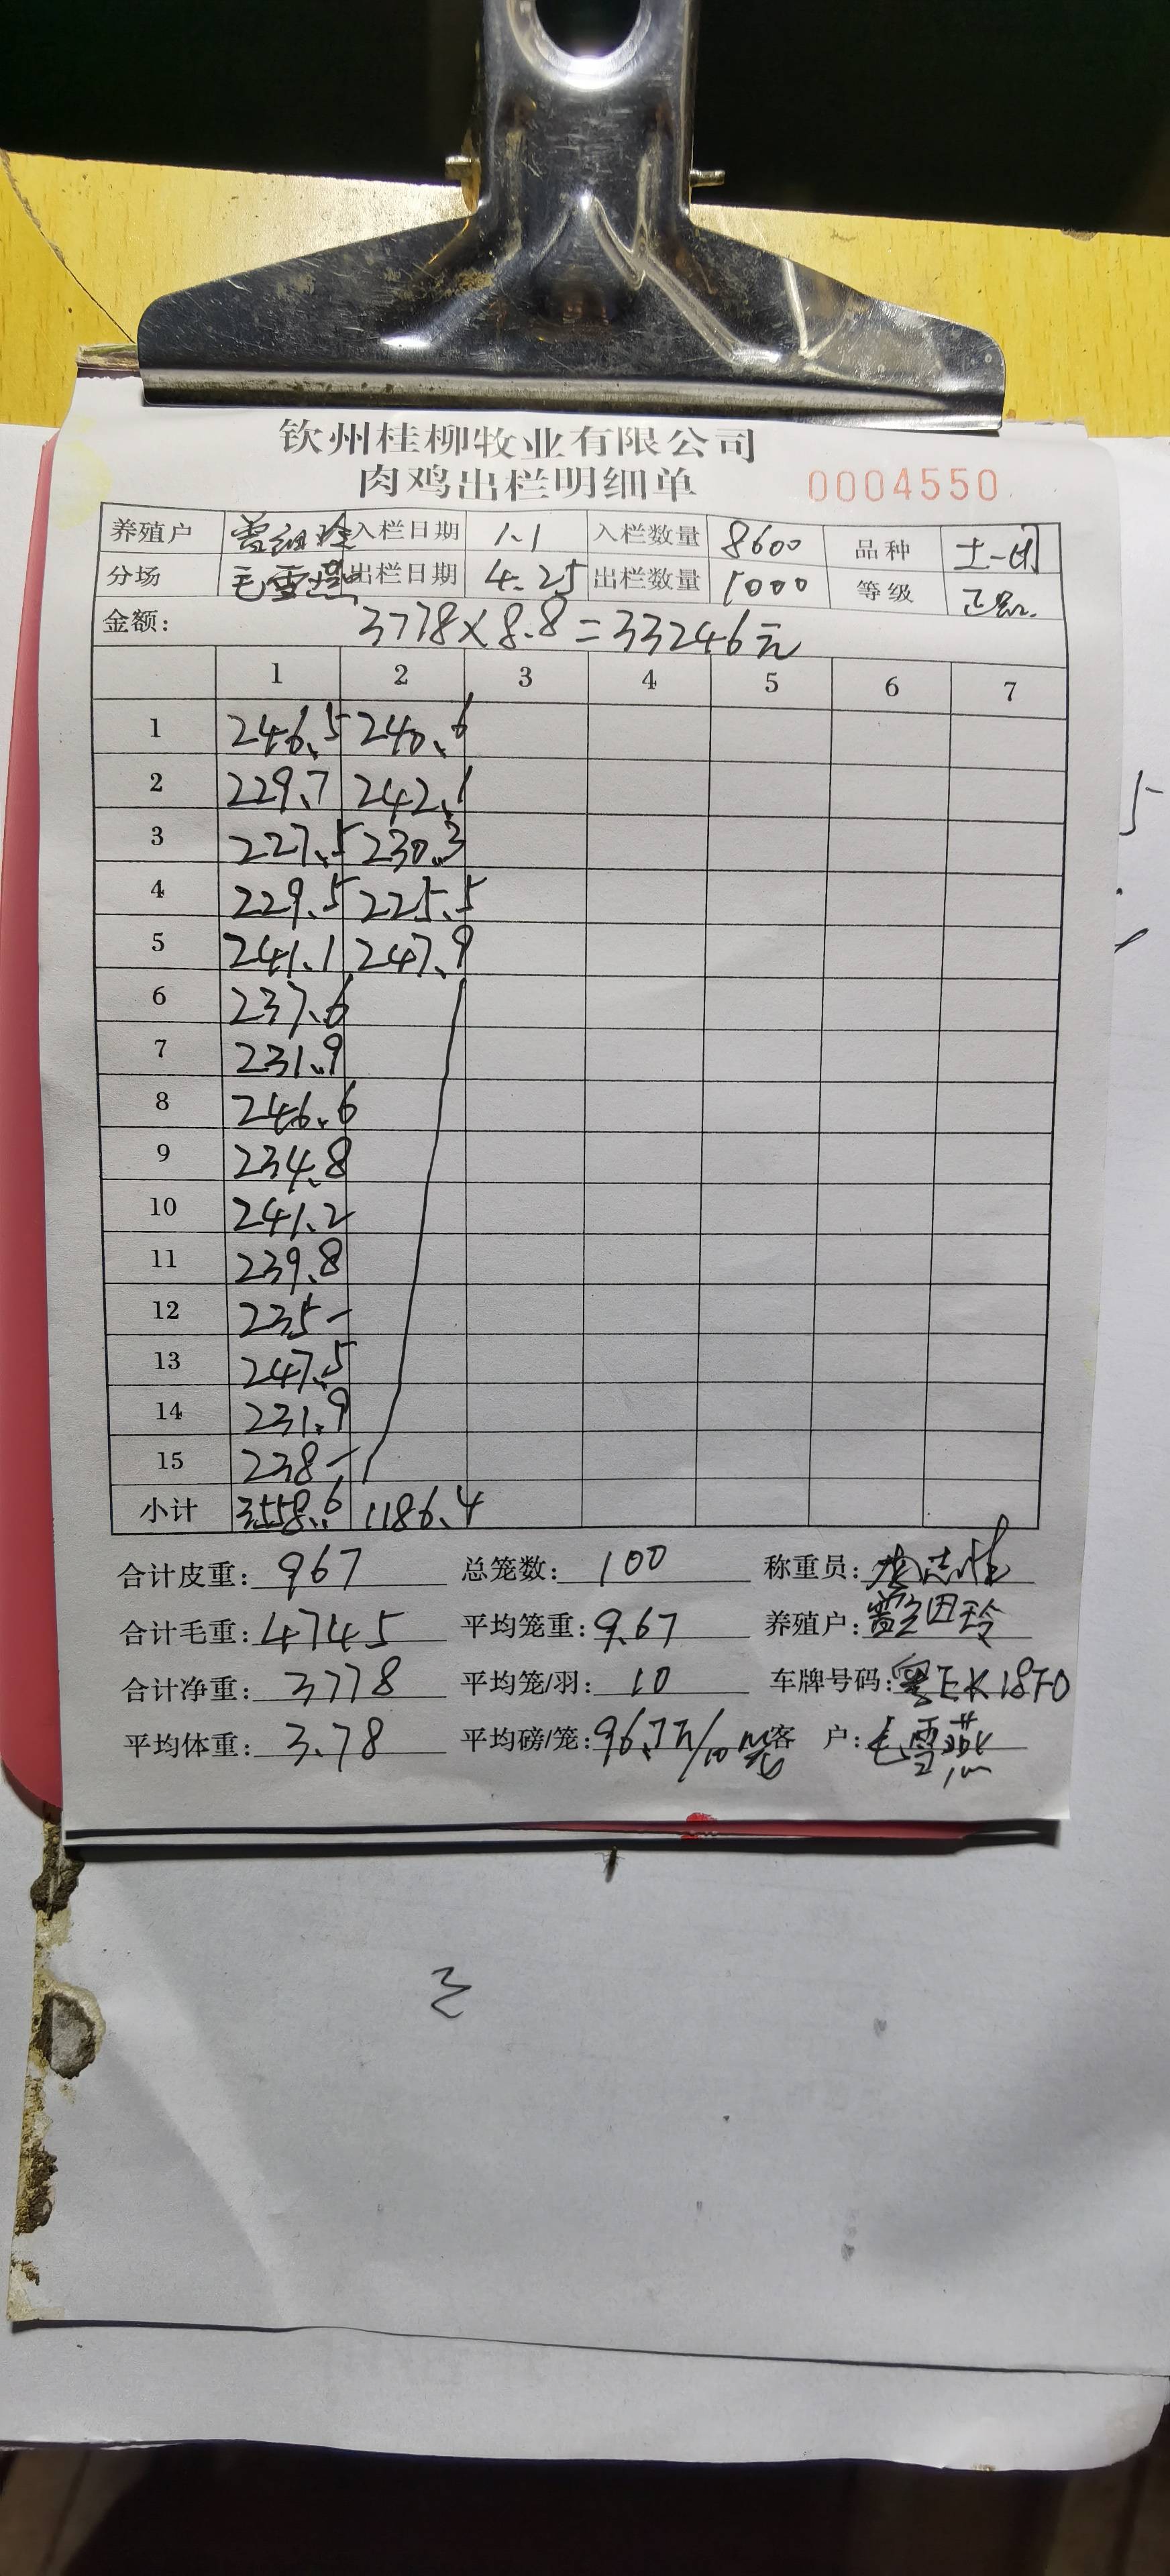 钦州桂柳牧业有限公司
肉鸡出栏明细单 0004550
养殖户 入栏日期 1.1 入栏数量 8600 品种
分场 毛雪燕 出栏日期 4.25 出栏数量 1000 等级
金额: 3778×8.8=33246元
1 2 3 4 5 6 7
1 246.5 240.6
2 229.7 242.1
3 227.5 230.3
4 229.5 225.5
5 241.1 247.9
6 237.6
7 231.9
8 246.6
9 234.8
10 241.2
11 239.8
12 235-
13 247.5
14 231.9
15 238-
小计 3558.6 1186.4
合计皮重: 967 总笼数: 100 称重员:
合计毛重: 4745 平均笼重: 9.67 养殖户:
合计净重: 3778 平均笼/羽: 10 车牌号码: 粤EK18F0
平均体重: 3.78 平均磅/笼: 96.7斤/10笼 客 户: 毛雪燕